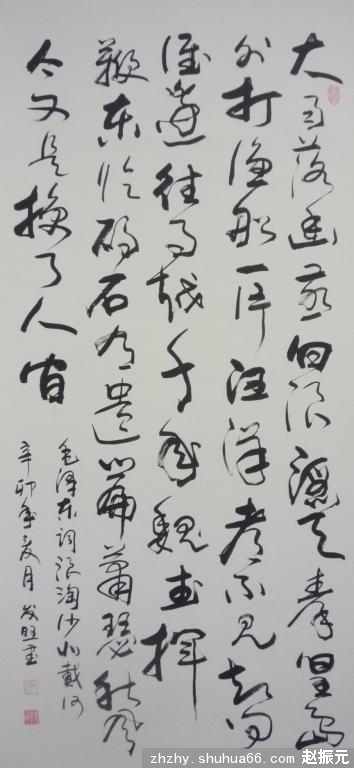 大雨落幽燕白浪滔天秦皇岛
外打渔船一片汪洋都不见知向
谁边往事越千年魏武挥
鞭东临碣石有遗篇萧瑟秋风
今又是换了人间
毛泽东词浪淘沙北戴河
辛卯年夏月发旺书
zhzhy.shuhua66.com 赵振元